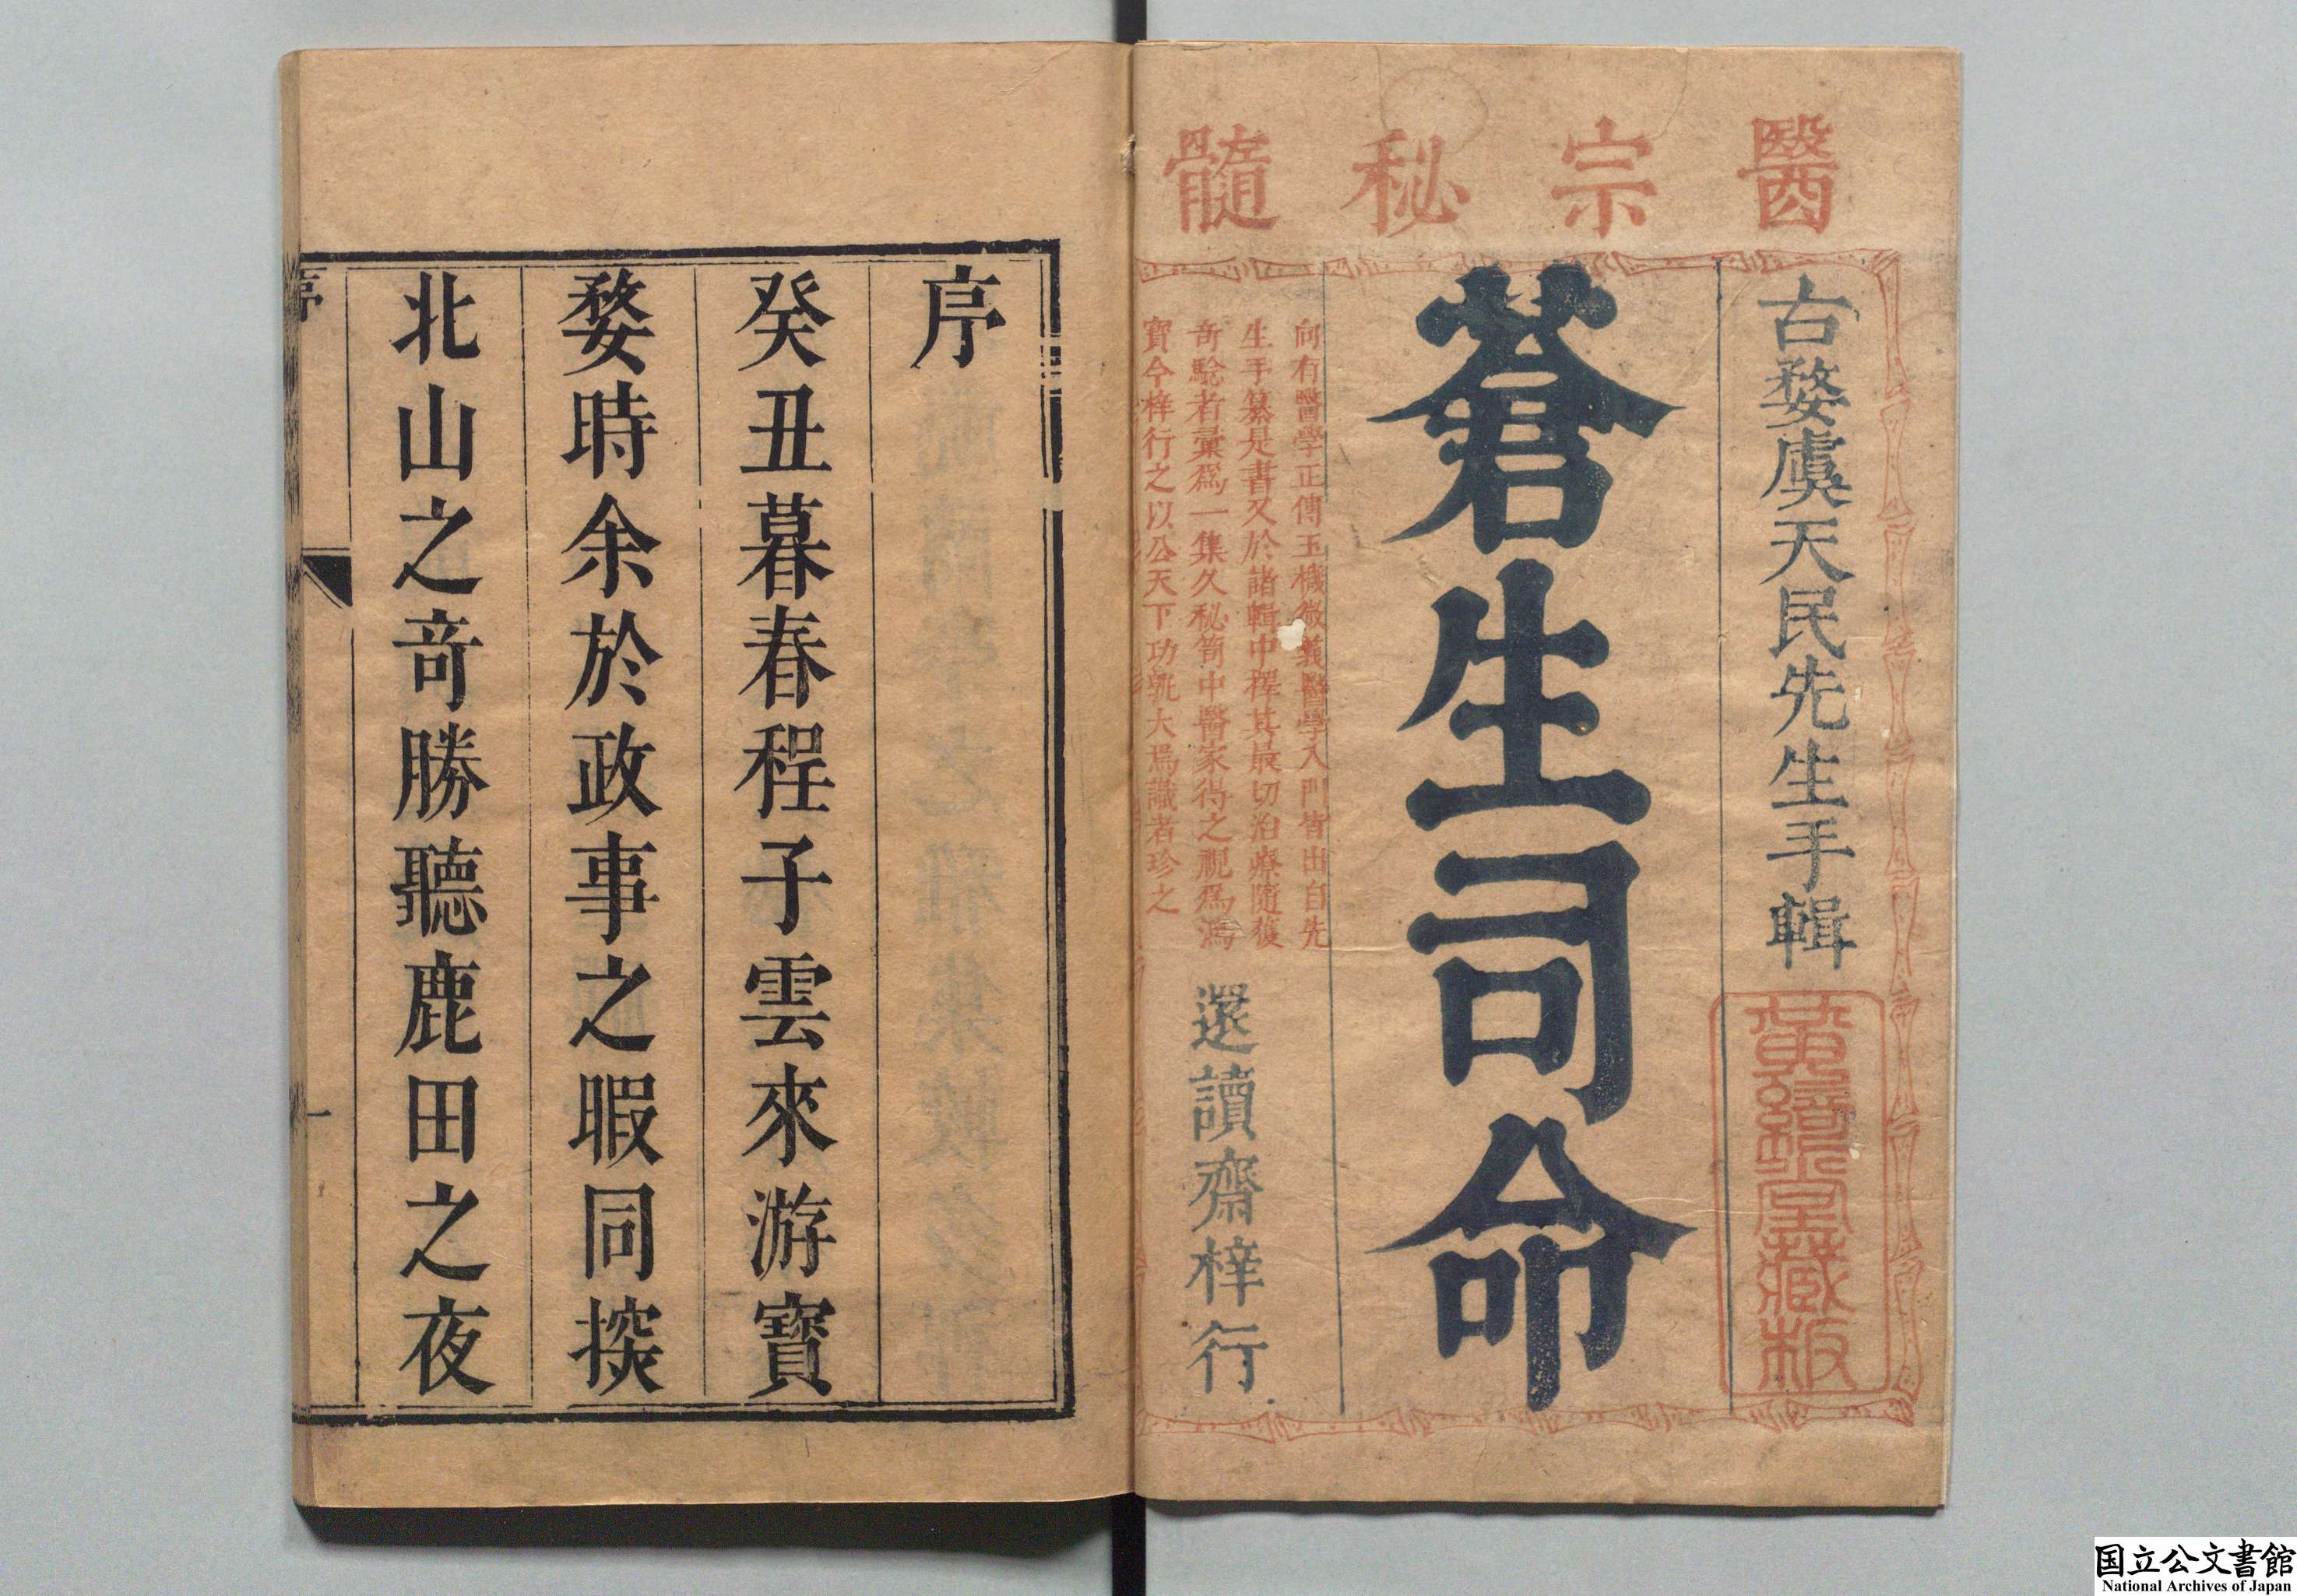 醫宗秘髓
古婺虞天民先生手輯
蒼生司命
向有醫學正傳玉機微義醫學入門皆出自先
生手纂是書又於諸輯中擇其最切治療隨獲
奇驗者彙爲一集久秘笥中醫家得之視爲鴻
寶今梓行之以公天下功孰大焉識者珍之
還讀齋梓行
堂藏板
序
癸丑暮春程子雲來游寶
婺時余於政事之暇同探
北山之奇勝聽鹿田之夜
序
一
国立公文書館
National Archives of Japan